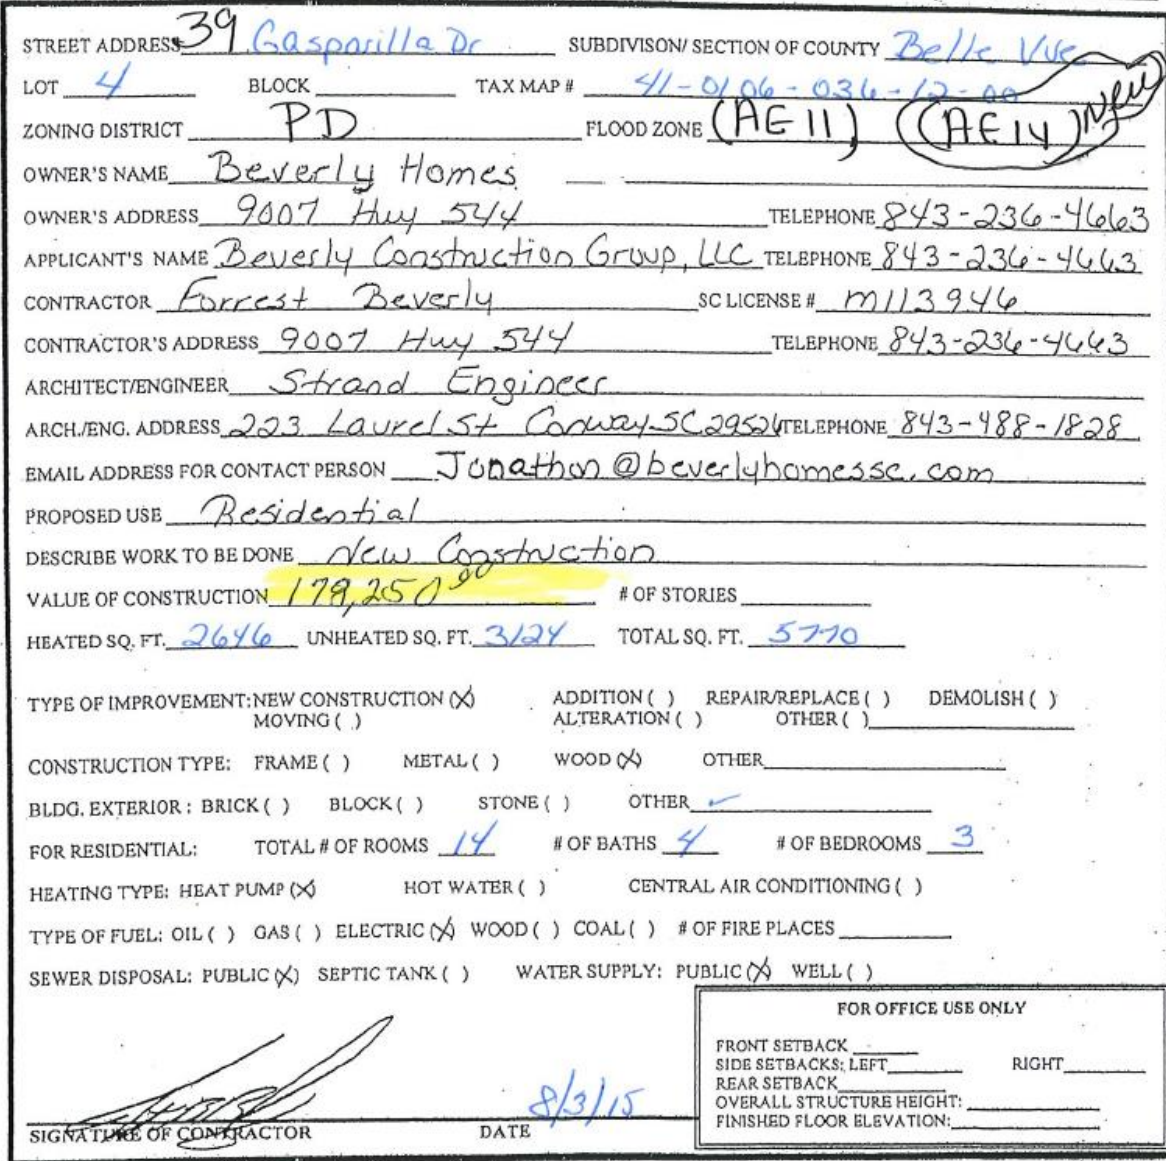 STREET ADDRESS 39 Gasparilla Dr SUBDIVISON/ SECTION OF COUNTY Belle Vue
LOT 4 BLOCK TAX MAP # 41-0106-036-12-00
ZONING DISTRICT PD FLOOD ZONE (AE 11) (AE 14) New
OWNER'S NAME Beverly Homes
OWNER'S ADDRESS 9007 Hwy 544 TELEPHONE 843-236-4663
APPLICANT'S NAME Beverly Construction Group, LLC TELEPHONE 843-236-4663
CONTRACTOR Forrest Beverly SC LICENSE # M113946
CONTRACTOR'S ADDRESS 9007 Hwy 544 TELEPHONE 843-236-4663
ARCHITECT/ENGINEER Strand Engineer
ARCH./ENG. ADDRESS 223 Laurel St Conway SC 29526 TELEPHONE 843-488-1828
EMAIL ADDRESS FOR CONTACT PERSON Jonathon@beverlyhomessc.com
PROPOSED USE Residential
DESCRIBE WORK TO BE DONE New Construction
VALUE OF CONSTRUCTION 179,250 00 # OF STORIES
HEATED SQ. FT. 2646 UNHEATED SQ. FT. 3124 TOTAL SQ. FT. 5770
TYPE OF IMPROVEMENT: NEW CONSTRUCTION (X) ADDITION ( ) REPAIR/REPLACE ( ) DEMOLISH ( )
MOVING ( ) ALTERATION ( ) OTHER ( )
CONSTRUCTION TYPE: FRAME ( ) METAL ( ) WOOD (X) OTHER
BLDG. EXTERIOR : BRICK ( ) BLOCK ( ) STONE ( ) OTHER ✓
FOR RESIDENTIAL: TOTAL # OF ROOMS 14 # OF BATHS 4 # OF BEDROOMS 3
HEATING TYPE: HEAT PUMP (X) HOT WATER ( ) CENTRAL AIR CONDITIONING ( )
TYPE OF FUEL: OIL ( ) GAS ( ) ELECTRIC (X) WOOD ( ) COAL ( ) # OF FIRE PLACES
SEWER DISPOSAL: PUBLIC (X) SEPTIC TANK ( ) WATER SUPPLY: PUBLIC (X) WELL ( )
FOR OFFICE USE ONLY
FRONT SETBACK
SIDE SETBACKS: LEFT RIGHT
REAR SETBACK
OVERALL STRUCTURE HEIGHT:
FINISHED FLOOR ELEVATION:
8/3/15
SIGNATURE OF CONTRACTOR DATE